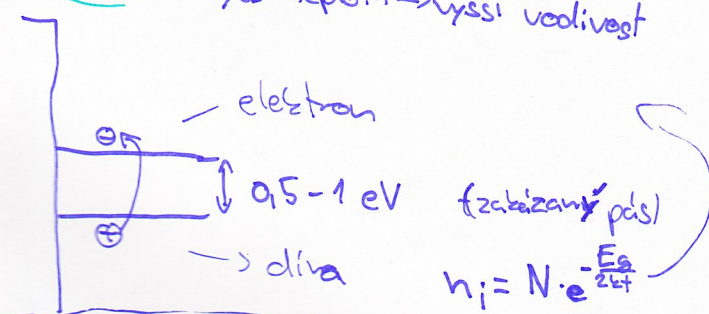 vyšší vodivost
⊖
elektron
0,5-1 eV (zakázaný pás)
⊕
-> díra
n_i = N·e^{-\frac{Eg}{2kt}}